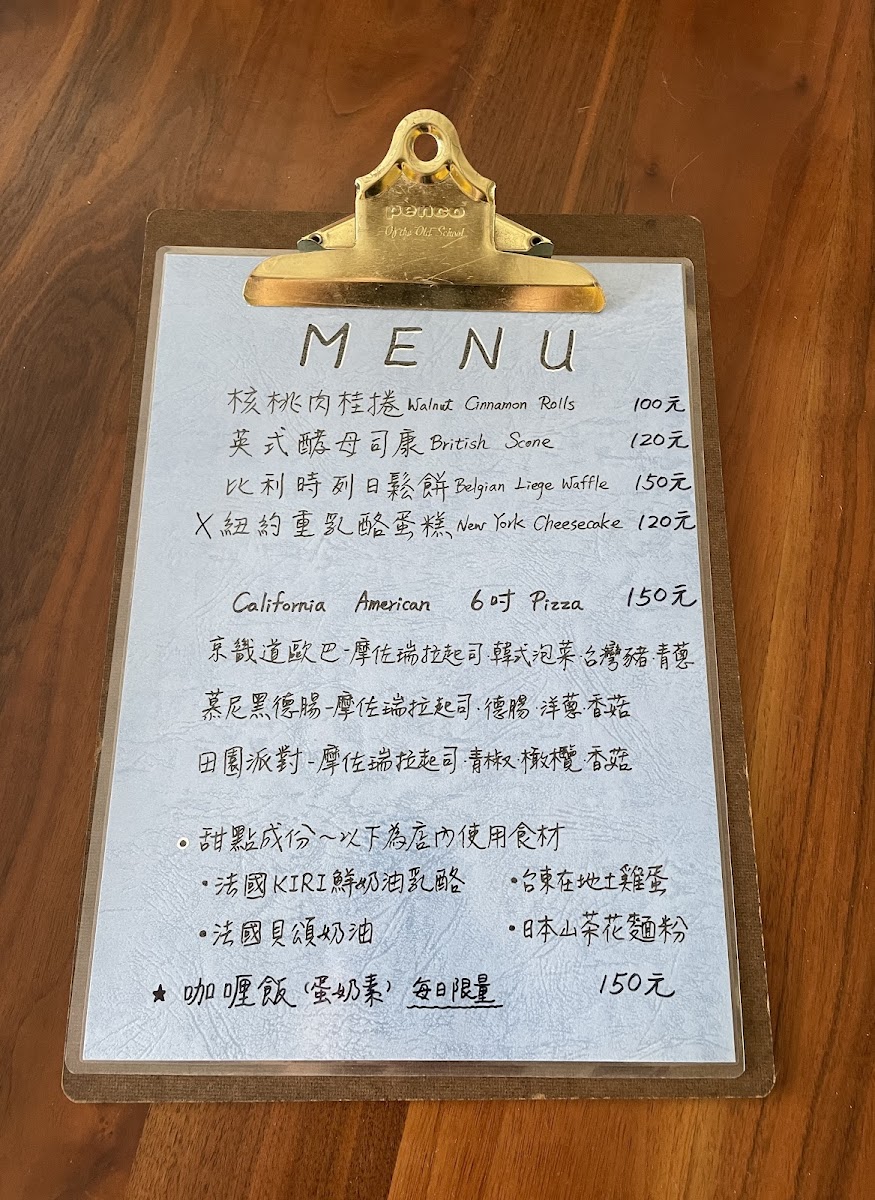 penco
Of the Old School
MENU
核桃肉桂捲 Walnut Cinnamon Rolls 100元
英式酵母司康 British Scone 120元
比利時列日鬆餅 Belgian Liege Waffle 150元
X 紐約重乳酪蛋糕 New York Cheesecake 120元
California American 6吋 Pizza 150元
京畿道歐巴-摩佐瑞拉起司·韓式泡菜·台灣豬·青蔥
慕尼黑德腸-摩佐瑞拉起司·德腸·洋蔥·香菇
田園派對-摩佐瑞拉起司·青椒·橄欖·香菇
• 甜點成份~以下為店內使用食材
•法國KIRI鮮奶油乳酪 •台東在地土雞蛋
•法國貝頌奶油 •日本山茶花麵粉
★ 咖喱飯(蛋奶素) 每日限量 150元